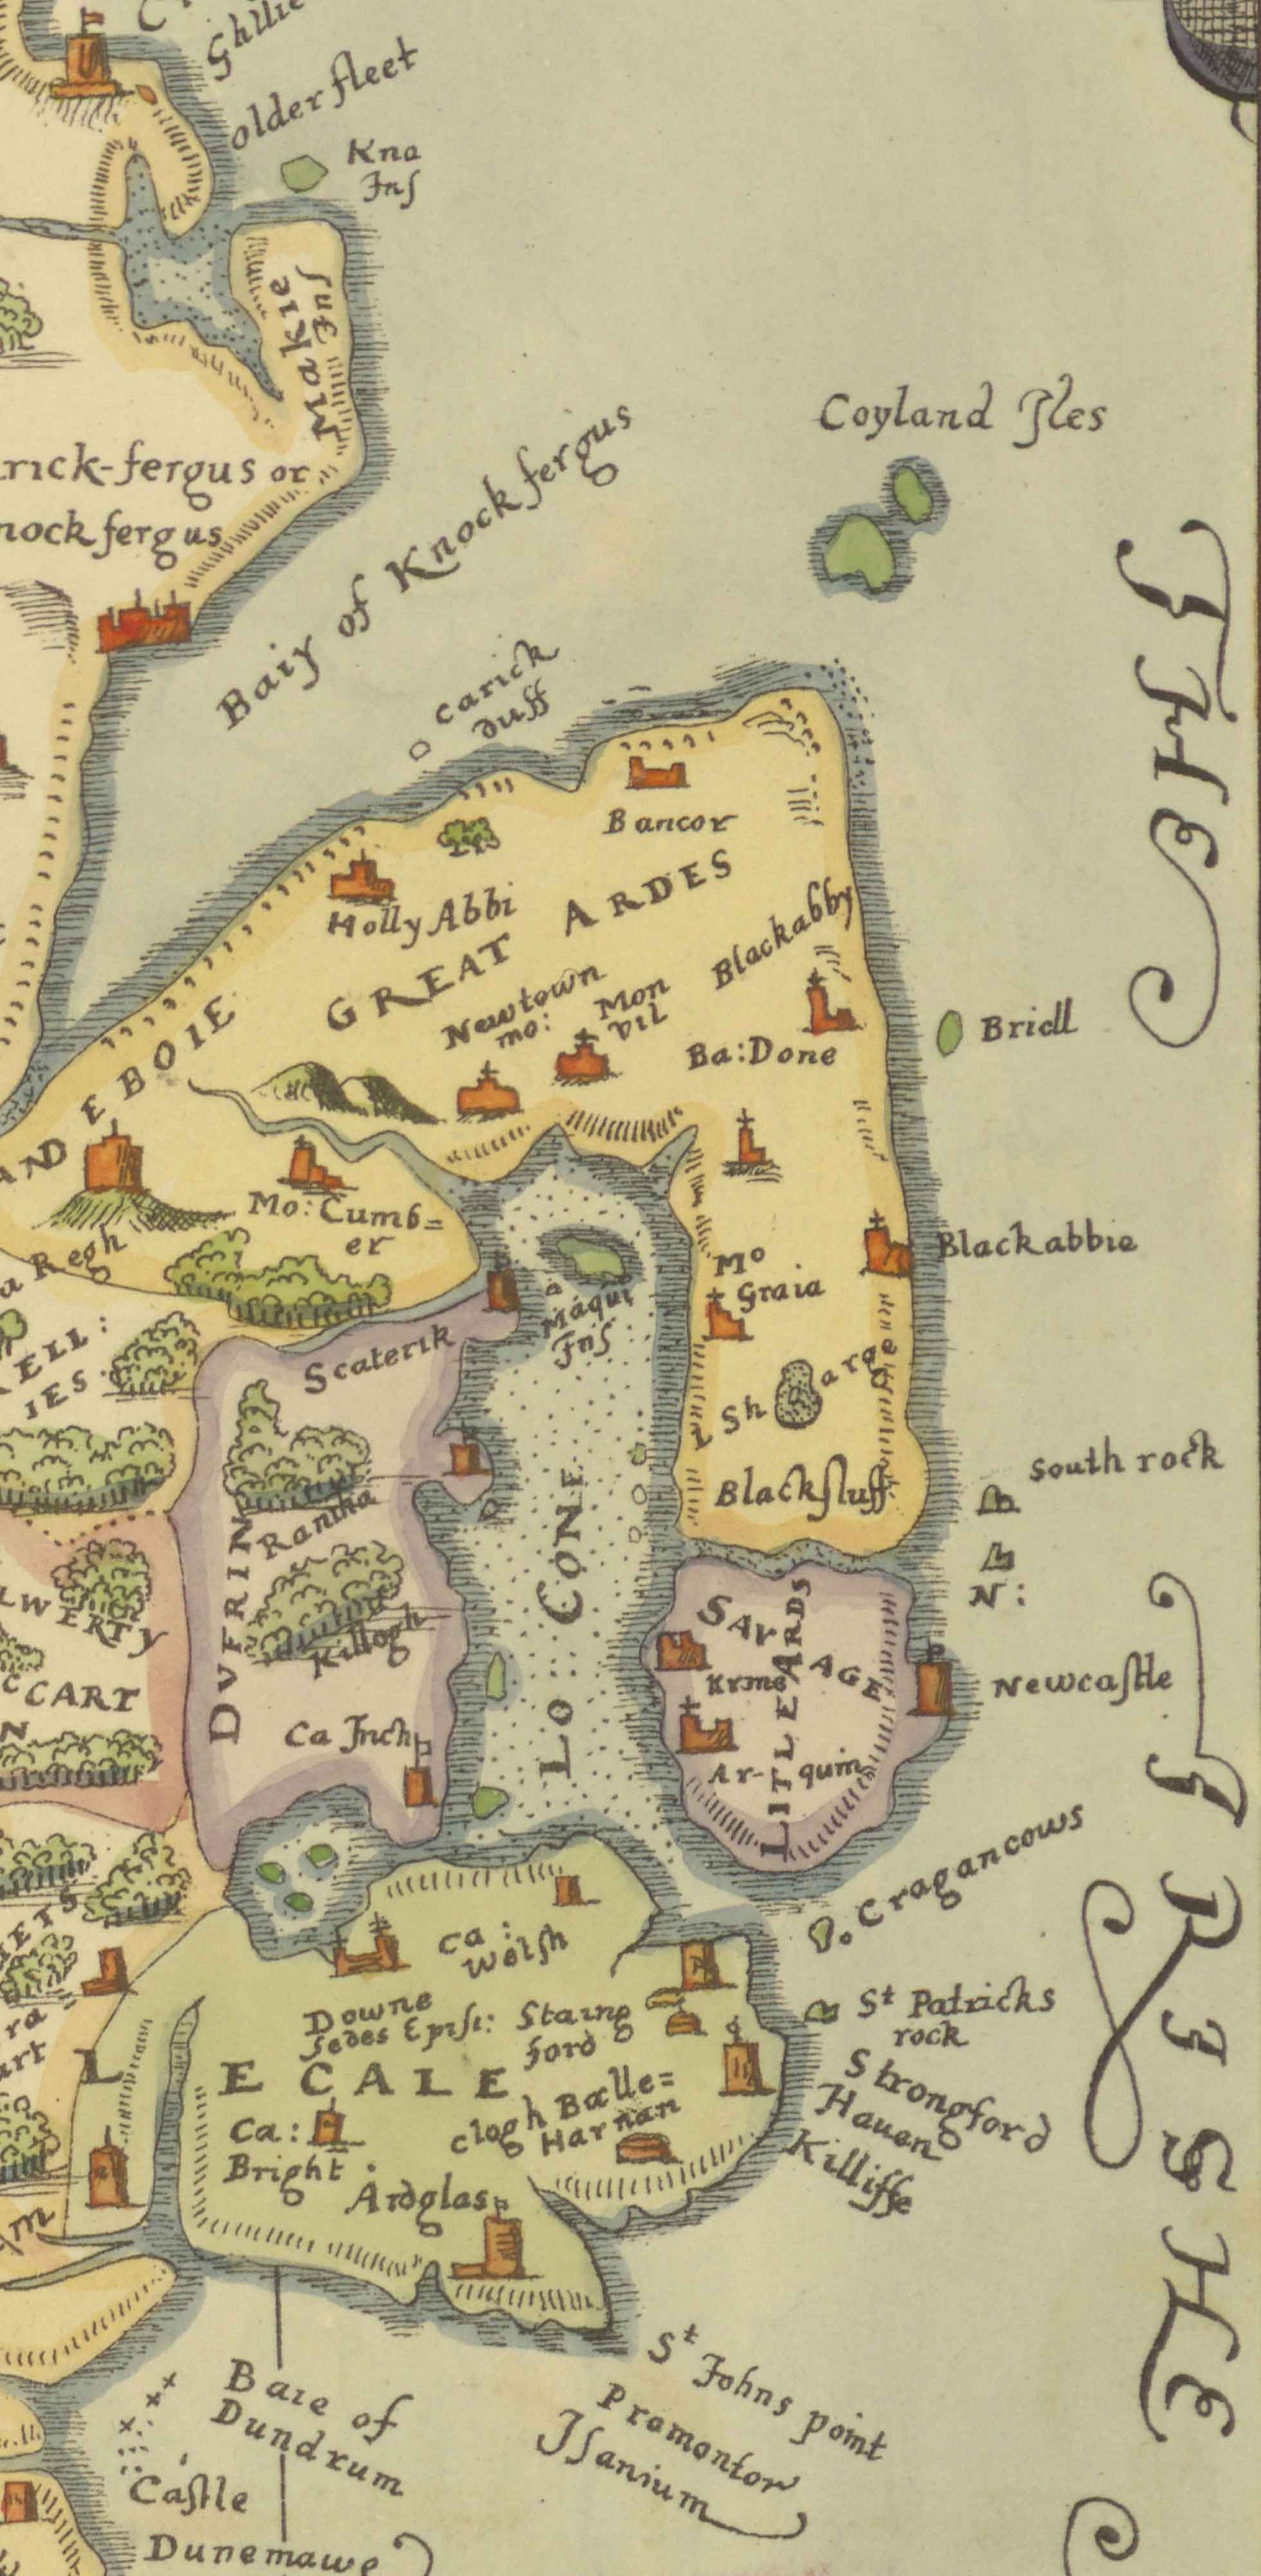 Ghllie
olderfleet
Kna
Inſ
Makie
Inſ
rick-fergus or
nock fergus
Baiy of Knockfergus
Coyland Iles
carick
duff
Bancor
Holly Abbi
GREAT ARDES
Blackabby
Newtown
mo:
Mon
vil
Ba: Done
Briell
AND EBOIE
Mo: Cumb=
er
a Regh
Blackabbie
Mo
Graia
Maqui
Inſ
Scaterik
ELL:
IES:
Sharge
South rock
Blackſtuff
Rantha
DVFRIN
LO CONE
N:
Killogh
LWERTY
SAVAGE
LITLE ARDS
Newcaſtle
CART
N
Ca Inch
Ar-quin
Cragancows
Ca:
Welſh
Downe
Sedes Epiſc:
Strang
ford
St Patricks
rock
Strongford
Hauen
Killiffe
LECALE
clogh Balle=
Harnan
Ca:
Bright
Ardglas
St Johns point
Promontor
Iſanium
Baie of
Dundrum
Caſtle
Dunemawe
THE
IRISHE